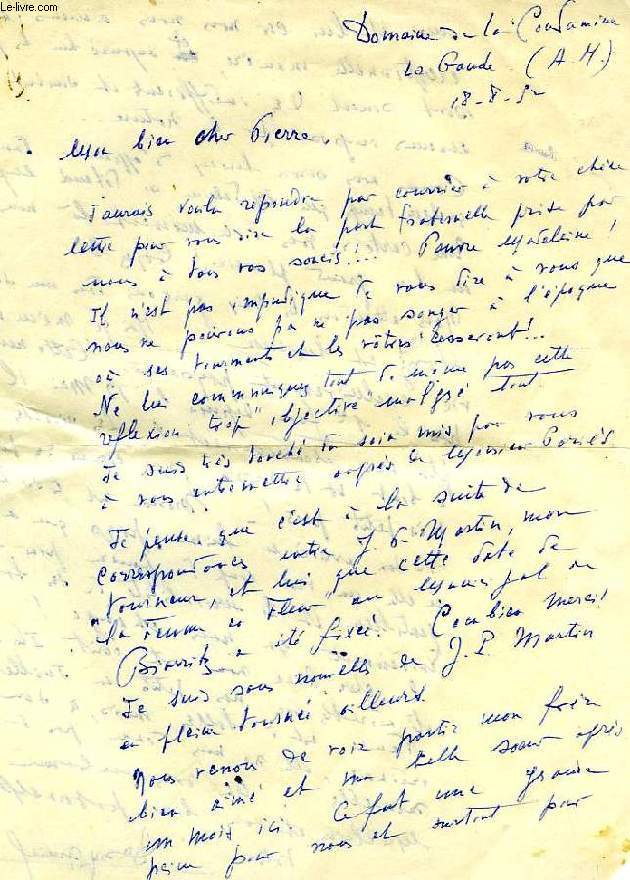 Le-livre.com
Domaine de la Condamine
La Gaude (A.M.)
18-8-52
Mon bien cher Pierre,
J'aurais voulu répondre par courrier à votre chère
lettre pour vous dire la part fraternelle prise par
nous à tous vos soucis!... Pauvre Madeleine!
Il n'est pas impudique de vous dire à vous que
nous ne pouvons pas ne pas songer à l'époque
où ses tourments et les vôtres cesseront!..
Ne lui communiquez tout de même pas cette
réflexion trop "objective" malgré tout
Je suis très touché du soin mis par vous
à vous entremettre auprès de Monsieur
Je pense que c'est à la suite de
correspondances entre J. P. Martin, mon
"tourneur", et lui que cette date de
"la Femme en Fleur" au municipal de
Biarritz a été fixée! Combien merci!
Je suis sans nouvelles de J. P. Martin
en pleine tournée ailleurs.
Nous venons de voir partir mon frère
bien aimé et ma belle soeur après
un mois ici. Ce fut une grande
peine pour nous et surtout pour